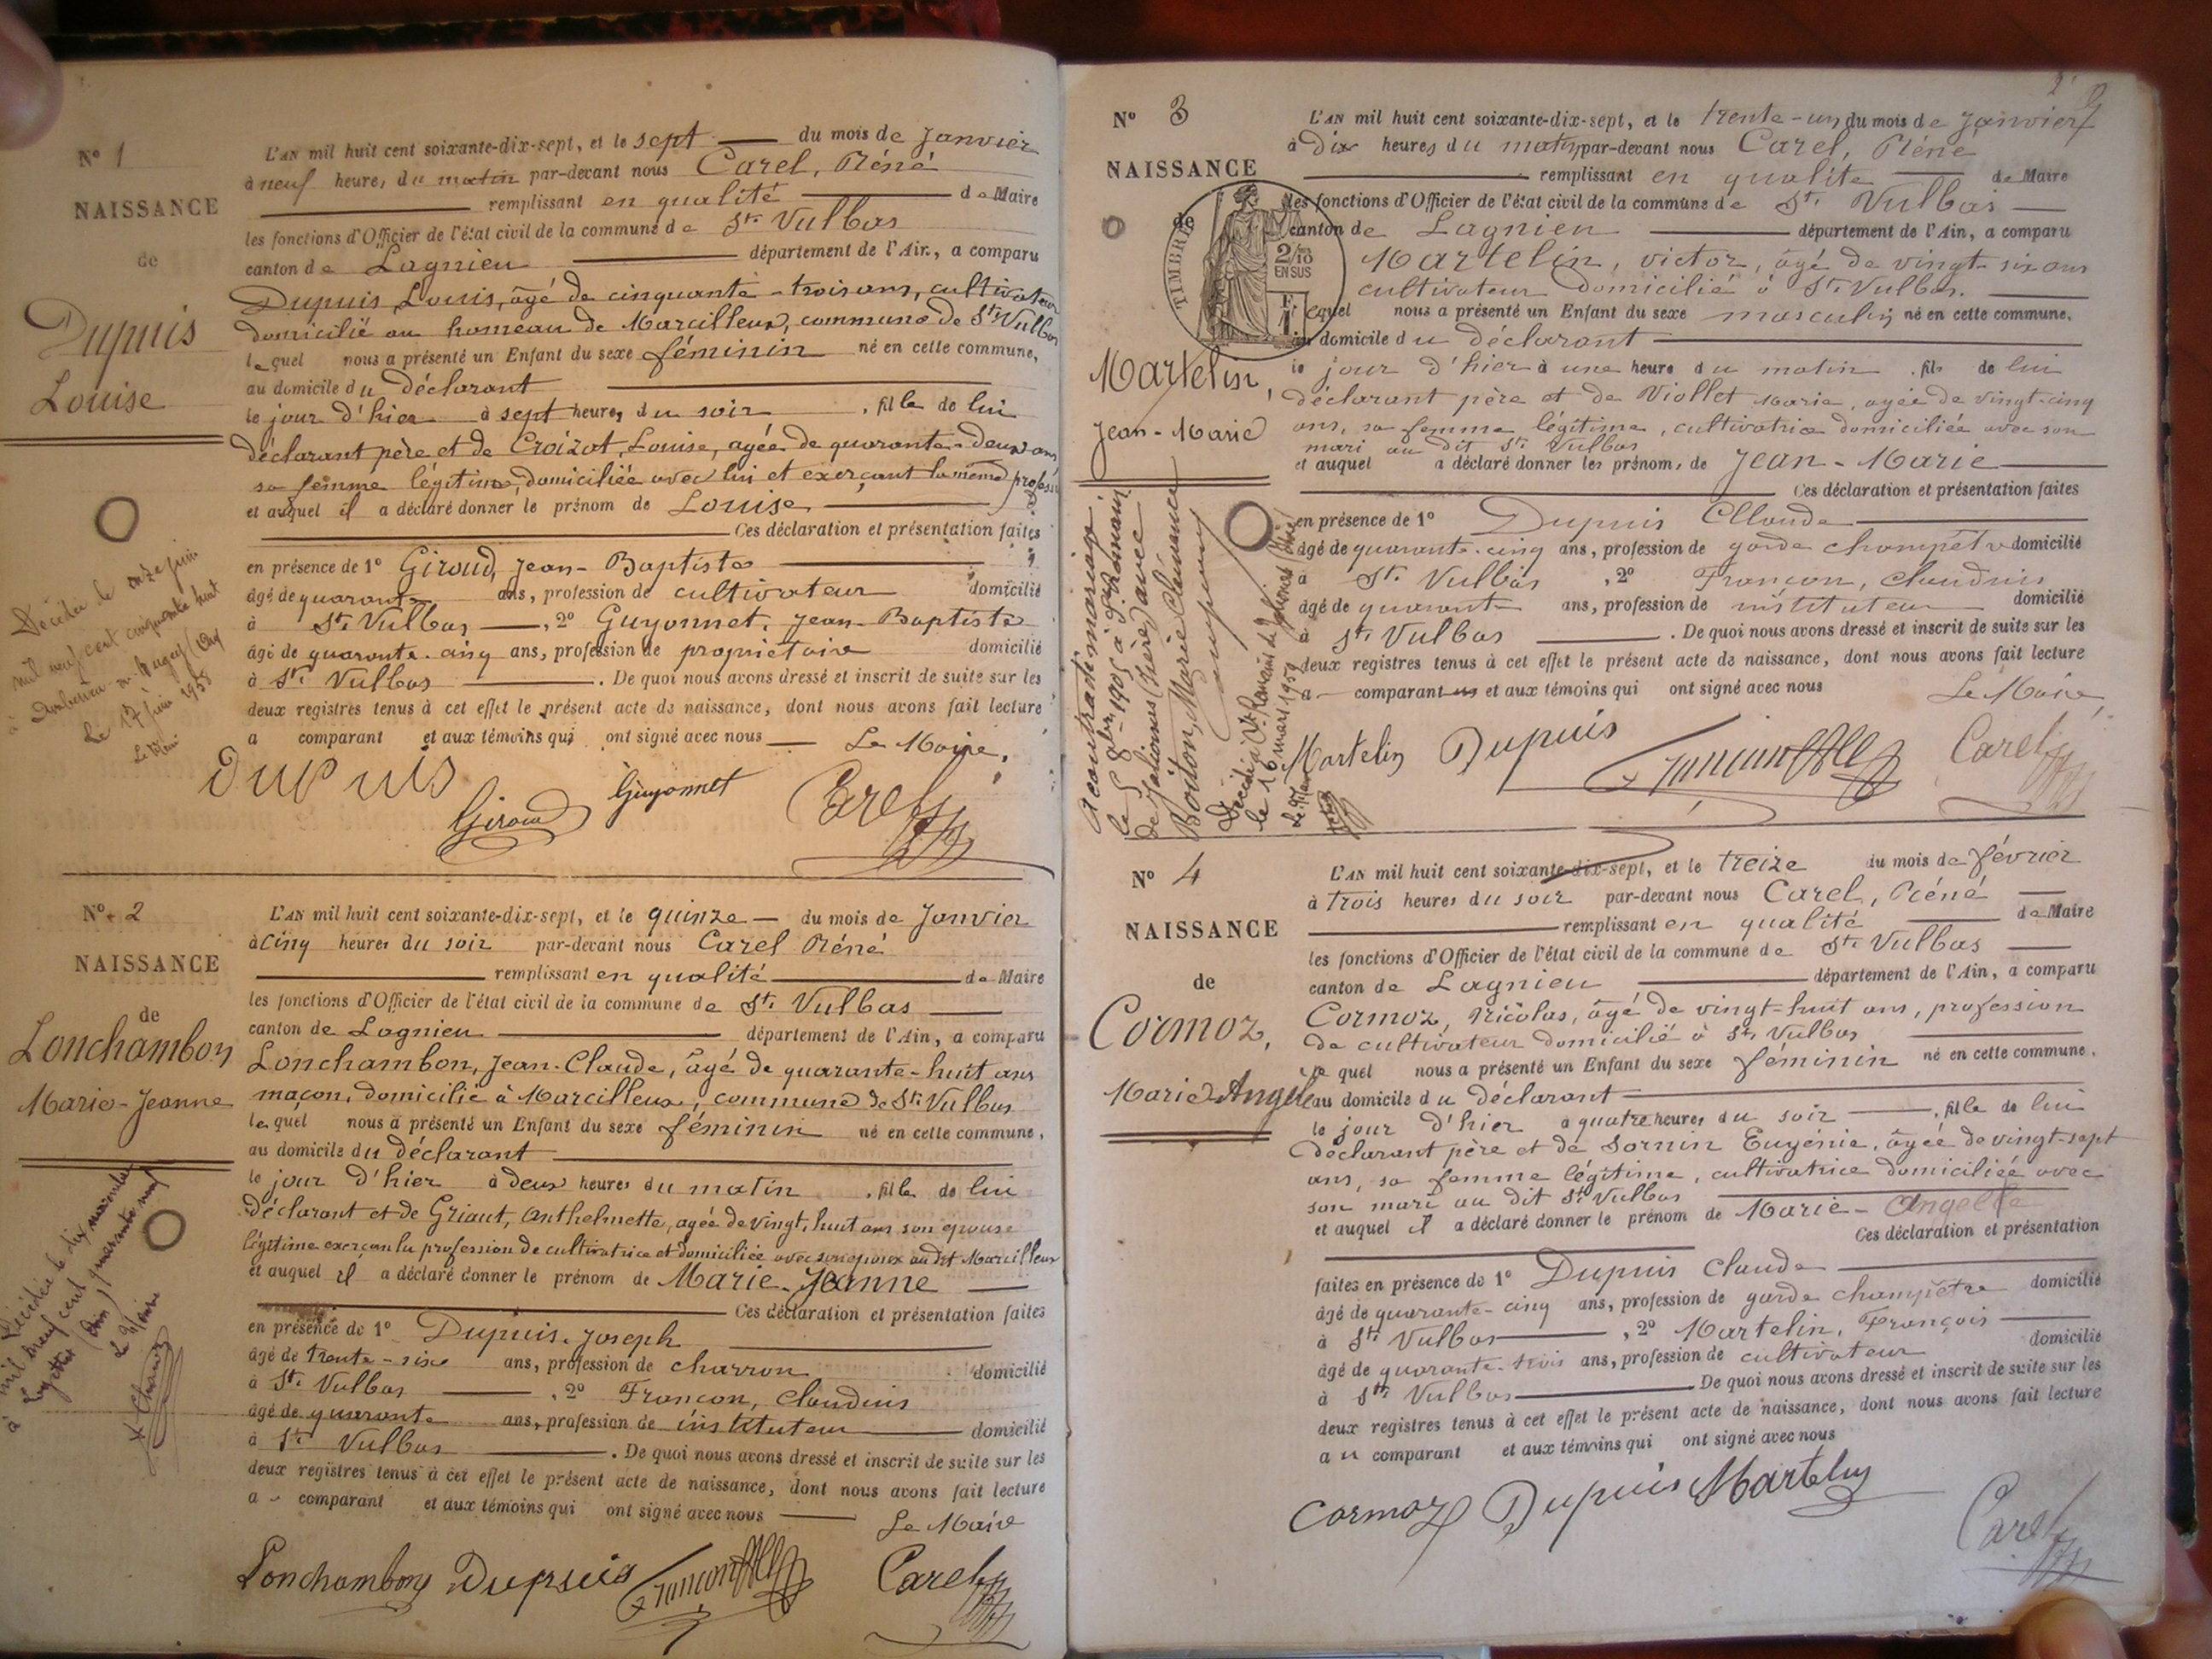 N° 1
NAISSANCE
de
Dupuis
Louise
L'AN mil huit cent soixante-dix-sept, et le sept du mois de Janvier
à neuf heures du matin par-devant nous Carel, Réné
remplissant en qualité de Maire
les fonctions d'Officier de l'état civil de la commune de St. Vulbas
canton de Lagnieu département de l'Ain, a comparu
Dupuis, Louis, âgé de cinquante-trois ans, cultivateur
domicilié au hameau de Marcilleux, commune de St. Vulbas
lequel nous a présenté un Enfant du sexe féminin né en cette commune,
au domicile du déclarant
le jour d'hier à sept heures du soir, fille de lui
déclarant père et de Croizat, Louise, agée de quarante-deux ans
sa femme légitime, domiciliée avec lui et exerçant la même profession
et auquel il a déclaré donner le prénom de Louise
Ces déclaration et présentation faites
en présence de 1° Giroud, Jean-Baptiste
âgé de quarante ans, profession de cultivateur domicilié
à St. Vulbas, 2° Guyonnet, Jean-Baptiste
âgé de quarante-cinq ans, profession de propriétaire domicilié
à St. Vulbas. De quoi nous avons dressé et inscrit de suite sur les
deux registres tenus à cet effet le présent acte de naissance, dont nous avons fait lecture
a comparant et aux témoins qui ont signé avec nous Le Maire,
Dupuis Giroud Guyonnet Carel
Décédée le onze juin
mil neuf cent cinquante huit
à Ambérieu-en-Bugey (Ain)
Le 17 juin 1958
N° 2
NAISSANCE
de
Lonchambon
Marie-Jeanne
L'AN mil huit cent soixante-dix-sept, et le quinze du mois de Janvier
à cinq heures du soir par-devant nous Carel Réné
remplissant en qualité de Maire
les fonctions d'Officier de l'état civil de la commune de St. Vulbas
canton de Lagnieu département de l'Ain, a comparu
Lonchambon, Jean-Claude, âgé de quarante-huit ans
maçon, domicilié à Marcilleux, commune de St. Vulbas
lequel nous a présenté un Enfant du sexe féminin né en cette commune,
au domicile du déclarant
le jour d'hier à deux heures du matin, fille de lui
déclarant et de Griaut, Anthelmette, agée de vingt-huit ans son épouse
légitime exerçant la profession de cultivatrice et domiciliée avec son époux au dit Marcilleux
et auquel il a déclaré donner le prénom de Marie-Jeanne
Ces déclaration et présentation faites
en présence de 1° Dupuis, Joseph
âgé de trente-six ans, profession de charron domicilié
à St. Vulbas, 2° Françon, Claudius
âgé de quarante ans, profession de instituteur domicilié
à St. Vulbas. De quoi nous avons dressé et inscrit de suite sur les
deux registres tenus à cet effet le présent acte de naissance, dont nous avons fait lecture
a comparant et aux témoins qui ont signé avec nous
Le Maire
Lonchambon Dupuis Françon Carel
Décédée le dix novembre
mil neuf cent quarante neuf
à (Ain)
Le Maire
2
N° 3
NAISSANCE
de
Martelin,
Jean-Marie
TIMBRE
2/10
EN SUS
F.
1.
L'AN mil huit cent soixante-dix-sept, et le trente-un du mois de Janvier
à dix heures du matin par-devant nous Carel, Réné
remplissant en qualité de Maire
les fonctions d'Officier de l'état civil de la commune de St. Vulbas
canton de Lagnieu département de l'Ain, a comparu
Martelin, Victor, âgé de vingt-six ans
cultivateur domicilié à St. Vulbas.
lequel nous a présenté un Enfant du sexe masculin né en cette commune,
au domicile du déclarant
le jour d'hier à une heure du matin, fils de lui
déclarant père et de Viollet Marie, agée de vingt-cinq
ans, sa femme légitime, cultivatrice domiciliée avec son
mari au dit St. Vulbas
et auquel a déclaré donner les prénoms de Jean-Marie
Ces déclaration et présentation faites
en présence de 1° Dupuis Claude
âgé de quarante-cinq ans, profession de garde champêtre domicilié
à St. Vulbas, 2° Françon, Claudius
âgé de quarante ans, profession de instituteur domicilié
à St. Vulbas. De quoi nous avons dressé et inscrit de suite sur les
deux registres tenus à cet effet le présent acte de naissance, dont nous avons fait lecture
a comparant et aux témoins qui ont signé avec nous Le Maire,
Martelin Dupuis Françon Carel
A contracté mariage
le 5 8bre 1905 à St. Romain
de Jalionas (Isère) avec
Boudon, Marie Clémance
Décédé à St. Romain de Jalionas (Isère)
le 16 mars 1959
Le Maire
N° 4
NAISSANCE
de
Cormoz,
Marie-Angèle
L'AN mil huit cent soixante-dix-sept, et le treize du mois de février
à trois heures du soir par-devant nous Carel, Réné
remplissant en qualité de Maire
les fonctions d'Officier de l'état civil de la commune de St. Vulbas
canton de Lagnieu département de l'Ain, a comparu
Cormoz, Nicolas, âgé de vingt-huit ans, profession
de cultivateur domicilié à St. Vulbas
lequel nous a présenté un Enfant du sexe féminin né en cette commune,
au domicile du déclarant
le jour d'hier à quatre heures du soir, fille de lui
déclarant père et de Sornin Eugénie, âgée de vingt-sept
ans, sa femme légitime, cultivatrice domiciliée avec
son mari au dit St. Vulbas
et auquel il a déclaré donner le prénom de Marie-Angèle
Ces déclaration et présentation
faites en présence de 1° Dupuis Claude
âgé de quarante-cinq ans, profession de garde champêtre domicilié
à St. Vulbas, 2° Martelin, François
âgé de quarante-trois ans, profession de cultivateur domicilié
à St. Vulbas. De quoi nous avons dressé et inscrit de suite sur les
deux registres tenus à cet effet le présent acte de naissance, dont nous avons fait lecture
au comparant et aux témoins qui ont signé avec nous
Cormoz Dupuis Martelin
Carel